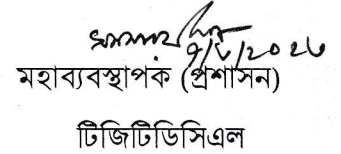 ৭/৮/২০২৩
মহাব্যবস্থাপক (প্রশাসন)
টিজিটিডিসিএল